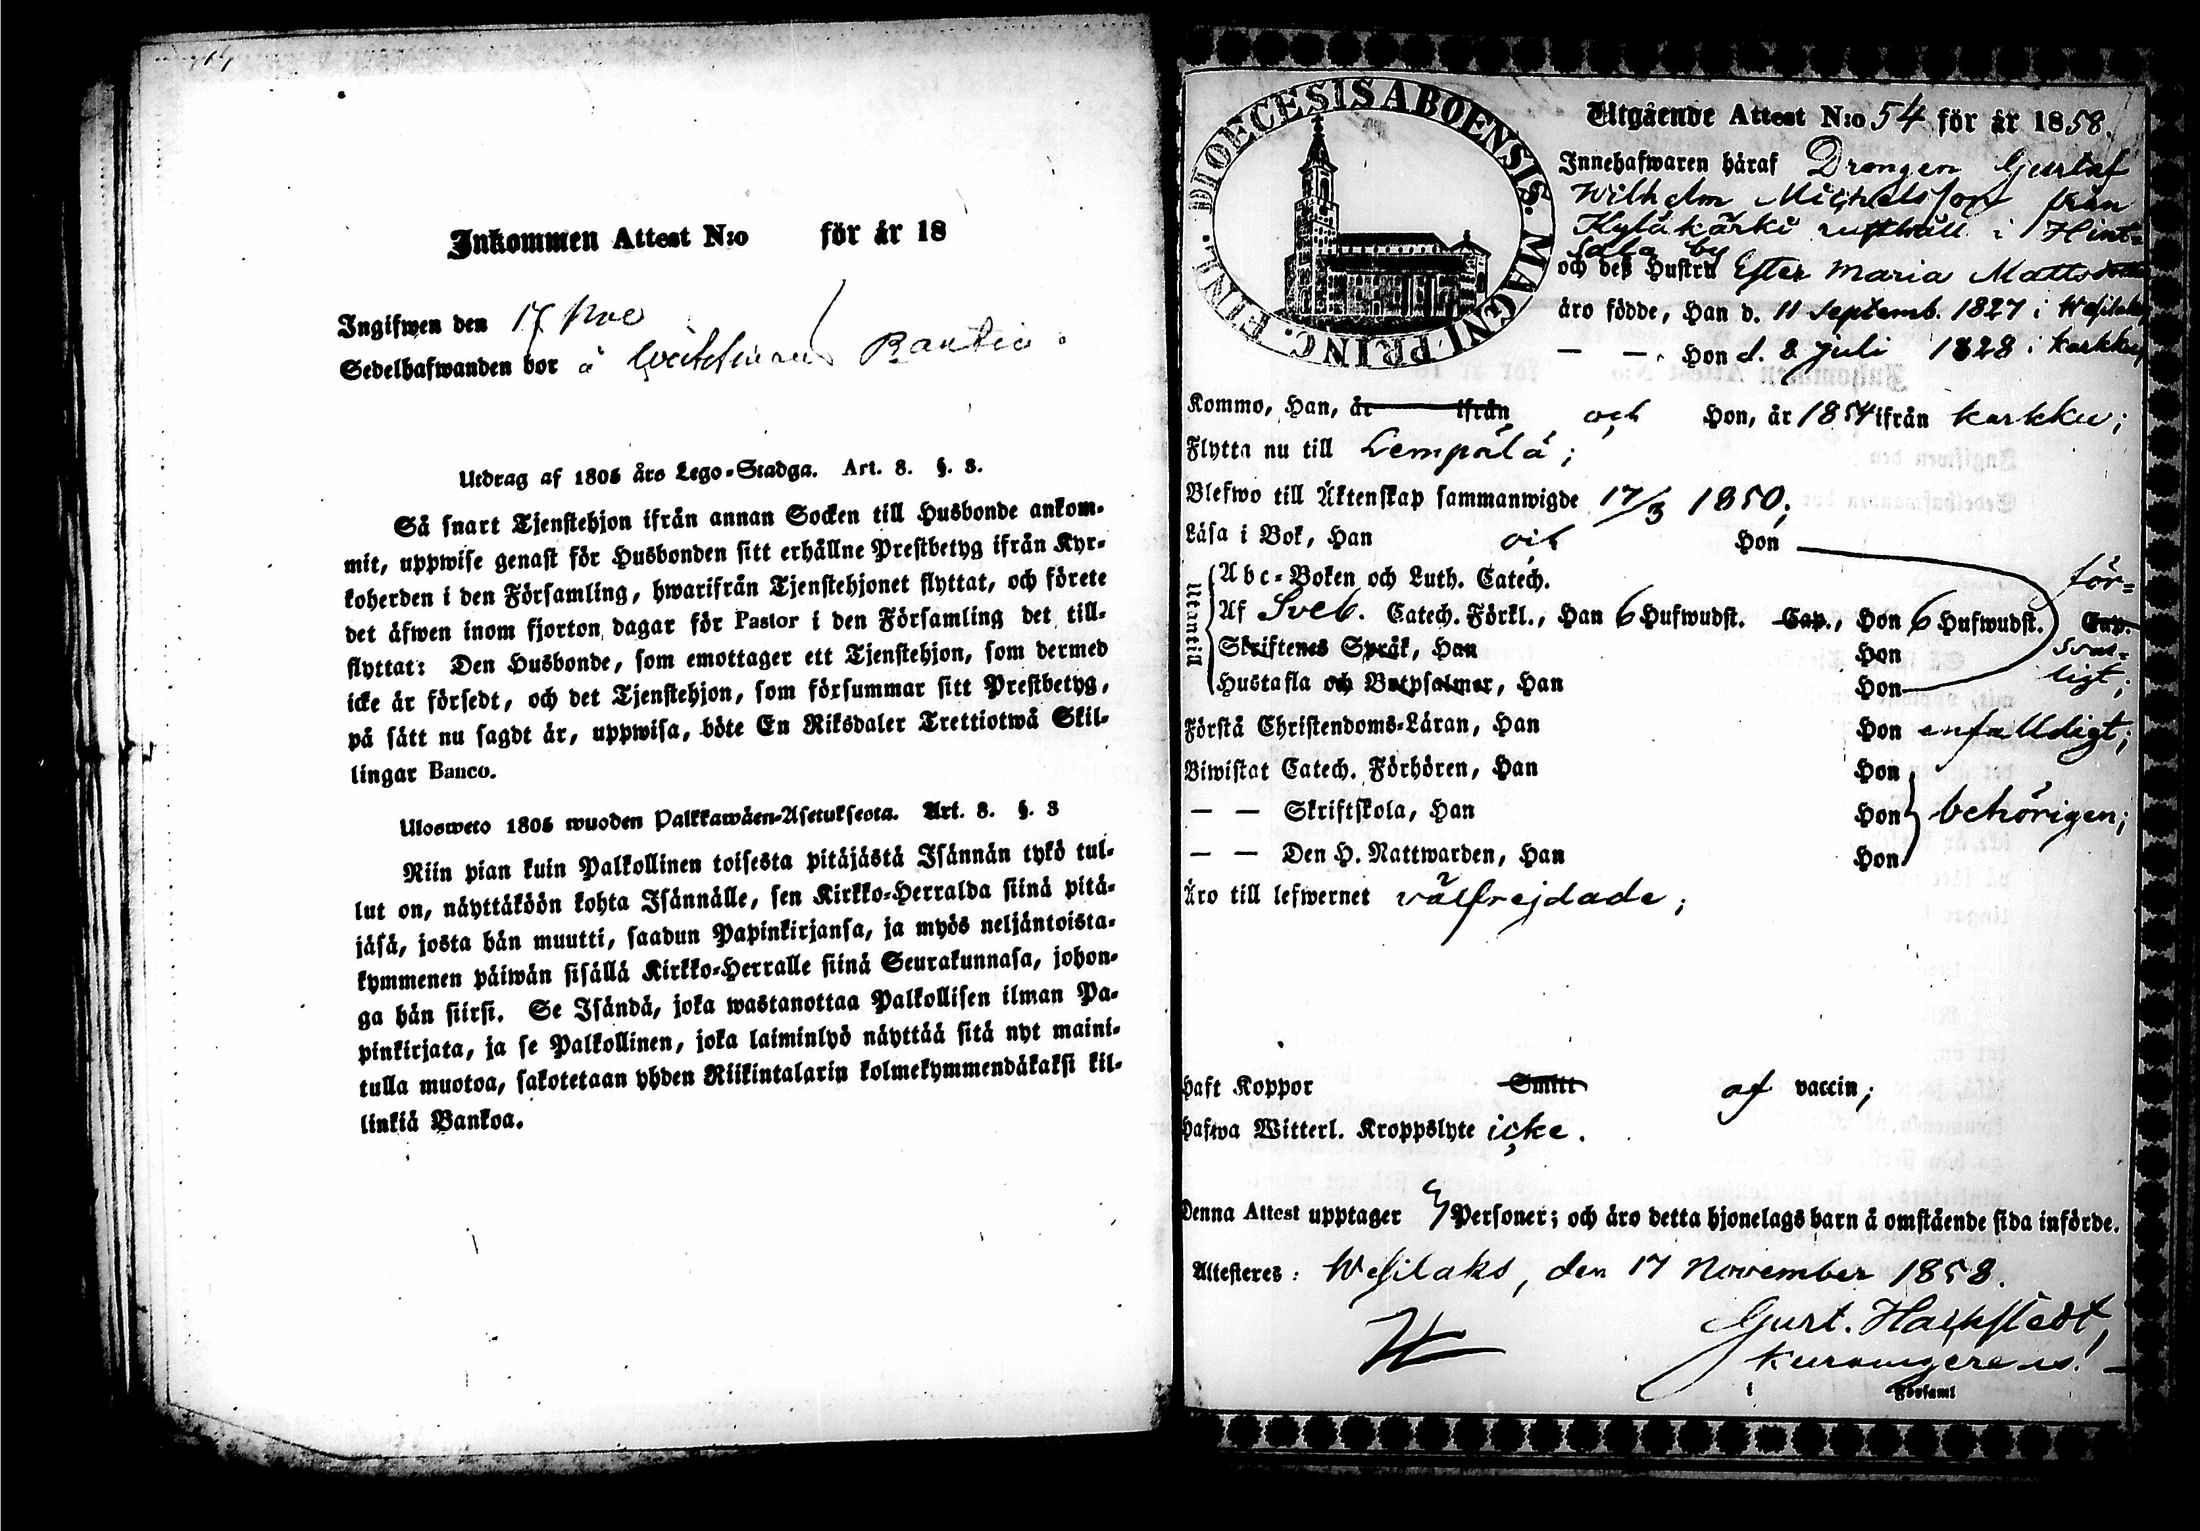 Inkommen Attest N:o för år 18
Ingifwen den 17 Nov
Sedelhafwanden bor å Rautio.
Utdrag af 1805 års Lego-Stadga. Art. 8. §. 3.
Så snart Tjenstehjon ifrån annan Socken till Husbonde ankom-
mit, uppwise genast för Husbonden sitt erhållne Prestbetyg ifrån Kyr-
koherden i den Församling, hwarifrån Tjenstehjonet flyttat, och förete
det äfwen inom fjorton dagar för Pastor i den Församling det till-
flyttat: Den Husbonde, som emottager ett Tjenstehjon, som dermed
icke är försedt, och det Tjenstehjon, som försummar sitt Prestbetyg,
på sätt nu sagdt är, uppwisa, böte En Riksdaler Trettiotwå Skil-
lingar Banco.
Ulosweto 1805 wuoden Palkkawäen-Asetuksesta. Art. 8. §. 3
Niin pian kuin Palkollinen toisesta pitäjästä Isännän tykö tul-
lut on, näyttäköön kohta Isännälle, sen Kirkko-Herralda siinä pitä-
jäsä, josta hän muutti, saadun Papinkirjansa, ja myös neljäntoista-
kymmenen päiwän sisällä Kirkko-Herralle siinä Seurakunnasa, johon-
ga hän siirsi. Se Isändä, joka wastanottaa Palkollisen ilman Pa-
pinkirjata, ja se Palkollinen, joka laiminlyö näyttää sitä nyt maini-
tulla muotoa, sakotetaan yhden Riikintalarin kolmekymmendäkaksi kil-
linkiä Bankoa.
DIOECESIS ABOENSIS. MAGNI PRINC. FINL.
Utgående Attest N:o 54 för år 1858.
Innehafwaren häraf Drengen Gustaf
Wilhelm Michelsson från
Kyläkärki rusthåll i Hint-
sala by
och dess Hustru Ester Maria Mattsdotter
äro födde, Han d. 11 Septemb. 1827 i Wesilaks
— — Hon d. 8 Juli 1828 i Karkku,
Kommo, Han, år ifrån och Hon, år 1854 ifrån Karkku;
Flytta nu till Lempälä;
Blefwo till Äktenskap sammanwigde 17/3 1850;
Läsa i Bok, Han och Hon
för-
Utantill
Abc-Boken och Luth. Catech.
Af Sveb. Catech. Förkl., Han 6 Hufwudst. Cap., Hon 6 Hufwudst. Cap.
Skriftenes Språk, Han Hon svar-
Hustafla och Botpsalmer, Han Hon ligt;
Förstå Christendoms-Läran, Han Hon enfalldigt;
Biwistat Catech. Förhören, Han Hon
— — Skriftskola, Han Hon behörigen;
— — Den H. Nattwarden, Han Hon
Äro till lefwernet välfrejdade;
Haft Koppor Smitt af vaccin;
Hafwa Witterl. Kroppslyte icke.
Denna Attest upptager Personer; och äro detta hjonelags barn å omstående sida införde.
Attesteres: Wesilaks, den 17 November 1858.
Gust.
i Församl